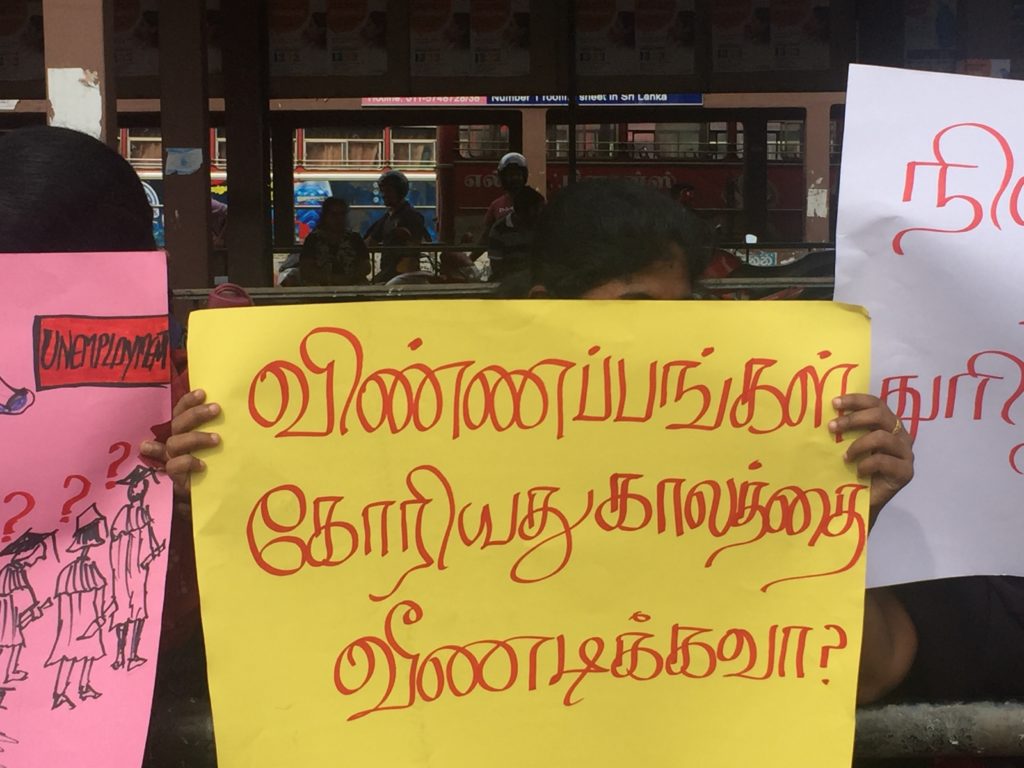 Hotline: 011-5748728/38 Number 1 roofing sheet in Sri Lanka
UNEMPLOYMENT
? ? ?
விண்ணப்பங்கள்
கோரியது காலத்தை
வீணடிக்கவா?
நி
துரி